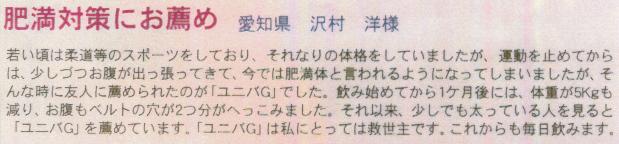 肥満対策にお薦め 愛知県 沢村 洋様
若い頃は柔道等のスポーツをしており、それなりの体格をしていましたが、運動を止めてから
は、少しづつお腹が出っ張ってきて、今では肥満体と言われるようになってしまいましたが、そ
んな時に友人に薦められたのが「ユニバG」でした。飲み始めてから1ケ月後には、体重が5Kgも
減り、お腹もベルトの穴が2つ分がへっこみました。それ以来、少しでも太っている人を見ると
「ユニバG」を薦めています。「ユニバG」は私にとっては救世主です。これからも毎日飲みます。